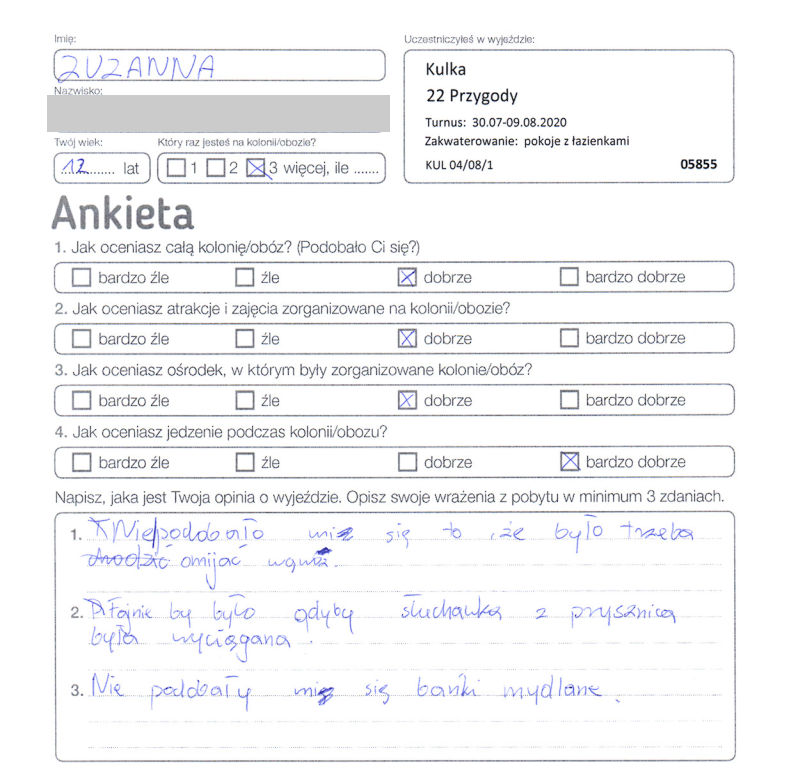 Imię:
ZUZANNA
Nazwisko:
Twój wiek:
12 lat
Który raz jesteś na kolonii/obozie?
1 2 3 więcej, ile .......
Uczestniczyłeś w wyjeździe:
Kulka
22 Przygody
Turnus: 30.07-09.08.2020
Zakwaterowanie: pokoje z łazienkami
KUL 04/08/1 05855
Ankieta
1. Jak oceniasz całą kolonię/obóz? (Podobało Ci się?)
bardzo źle źle dobrze bardzo dobrze
2. Jak oceniasz atrakcje i zajęcia zorganizowane na kolonii/obozie?
bardzo źle źle dobrze bardzo dobrze
3. Jak oceniasz ośrodek, w którym były zorganizowane kolonie/obóz?
bardzo źle źle dobrze bardzo dobrze
4. Jak oceniasz jedzenie podczas kolonii/obozu?
bardzo źle źle dobrze bardzo dobrze
Napisz, jaka jest Twoja opinia o wyjeździe. Opisz swoje wrażenia z pobytu w minimum 3 zdaniach.
1. Nie podobało mi się to ,że było trzeba
chodzić omijać
2. Fajnie by było gdyby słuchawka z prysznica
była wyciągana.
3. Nie podobały mi się bańki mydlane.